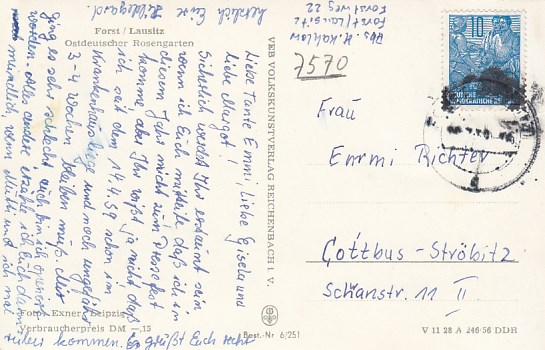 Forst / Lausitz
Ostdeutscher Rosengarten
Liebe Tante Emmi, liebe Gisela und
liebe Margot!
Sicherlich werdet Ihr erstaunt sein
wenn ich Euch mitteile daß ich in
diesem Jahr nicht zum Pressefest
komme, aber Ihr wißt ja nicht daß
ich seit dem 14.4.59 schon im
Krankenhaus liege und noch ungefähr
3-4 Wochen bleiben muß. Mir
ging es sehr schlecht, auch bin ich operiert
worden. Alles andere erzähle ich Euch dann
mündlich, wenn Mutti und ich mal
rüber kommen. Es grüßt Euch recht
herzlich Eure
Hildegard.
Foto: Exner, Leipzig
Verbraucherpreis DM —,15
Best.-Nr. 6/251
VEB VOLKSKUNSTVERLAG REICHENBACH I. V.
Abs. H. Kahlow
Forst/Lausitz
Forstweg 22
7570
10
DEUTSCHE
DEMOKRATISCHE
Frau
Emmi Richter
Cottbus-Ströbitz
Schanstr. 11 II
V 11 28 A 246-56 DDR